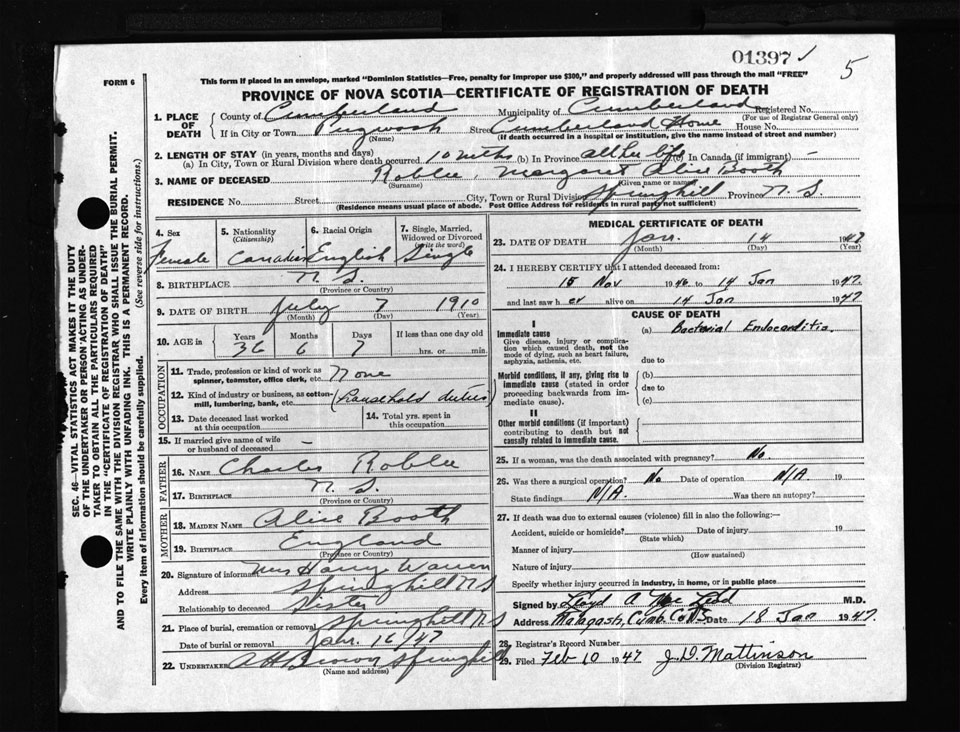 01397 ✓
5
FORM 6
This form if placed in an envelope, marked "Dominion Statistics—Free, penalty for improper use $300," and properly addressed will pass through the mail "FREE"
PROVINCE OF NOVA SCOTIA—CERTIFICATE OF REGISTRATION OF DEATH
1. PLACE OF DEATH
County of Cumberland Municipality of Cumberland Registered No.
(For use of Registrar General only)
If in City or Town Pugwash Street Cumberland Home House No.
(Name) (If death occurred in a hospital or institution, give the name instead of street and number)
2. LENGTH OF STAY (in years, months and days)
(a) In City, Town or Rural Division where death occurred 10 mths (b) In Province all her life (c) In Canada (if immigrant) —
3. NAME OF DECEASED Roblee, Margaret Alice Booth
(Surname) (Given name or names)
RESIDENCE No. Street City, Town or Rural Division Springhill Province N. S.
(Residence means usual place of abode. Post Office Address for residents in rural parts not sufficient)
4. Sex 5. Nationality (Citizenship) 6. Racial Origin 7. Single, Married, Widowed or Divorced (write the word)
Female Canadian English Single
8. BIRTHPLACE N. S.
(Province or Country)
9. DATE OF BIRTH July 7 1910
(Month) (Day) (Year)
10. AGE in Years Months Days If less than one day old
36 6 7 hrs. or min.
OCCUPATION
11. Trade, profession or kind of work as spinner, teamster, office clerk, etc. None
12. Kind of industry or business, as cotton-mill, lumbering, bank, etc. (household duties)
13. Date deceased last worked at this occupation
14. Total yrs. spent in this occupation
15. If married give name of wife or husband of deceased —
FATHER
16. NAME Charles Roblee
17. BIRTHPLACE N. S.
(Province or Country)
MOTHER
18. MAIDEN NAME Alice Booth
19. BIRTHPLACE England
(Province or Country)
20. Signature of informant Mrs Harry Warren
Address Springhill N S
Relationship to deceased Sister
21. Place of burial, cremation or removal Springhill N. S
Date of burial or removal Jan. 16 / 47
22. UNDERTAKER Brown Springhill
(Name and address)
MEDICAL CERTIFICATE OF DEATH
23. DATE OF DEATH Jan. 14 1947
(Month) (Day) (Year)
24. I HEREBY CERTIFY that I attended deceased from:
15 Nov 1946 to 14 Jan 1947.
and last saw her alive on 14 Jan 1947
CAUSE OF DEATH
I
Immediate cause
Give disease, injury or complication which caused death, not the mode of dying, such as heart failure, asphyxia, asthenia, etc.
(a) Bacterial Endocarditis.
due to
Morbid conditions, if any, giving rise to immediate cause (stated in order proceeding backwards from immediate cause).
(b)
due to
(c)
II
Other morbid conditions (if important) contributing to death but not causally related to immediate cause.
25. If a woman, was the death associated with pregnancy? No.
26. Was there a surgical operation? No Date of operation N/A 19
State findings N/A. Was there an autopsy?
27. If death was due to external causes (violence) fill in also the following:—
Accident, suicide or homicide? Date of injury 19
(State which)
Manner of injury
(How sustained)
Nature of injury
Specify whether injury occurred in industry, in home, or in public place
Signed by Lloyd A M.D.
Address Malagash, Cumb. Co NS Date 18 Jan 1947.
28. Registrar's Record Number
29. Filed Feb 10 1947 J. D. Mattinson
(Division Registrar)
SEC. 46—VITAL STATISTICS ACT MAKES IT THE DUTY
OF THE UNDERTAKER OR PERSON ACTING AS UNDER-
TAKER TO OBTAIN ALL THE PARTICULARS REQUIRED
IN THE "CERTIFICATE OF REGISTRATION OF DEATH"
AND TO FILE THE SAME WITH THE DIVISION REGISTRAR WHO SHALL ISSUE THE BURIAL PERMIT.
WRITE PLAINLY WITH UNFADING INK. THIS IS A PERMANENT RECORD.
Every item of information should be carefully supplied. (See reverse side for instructions.)